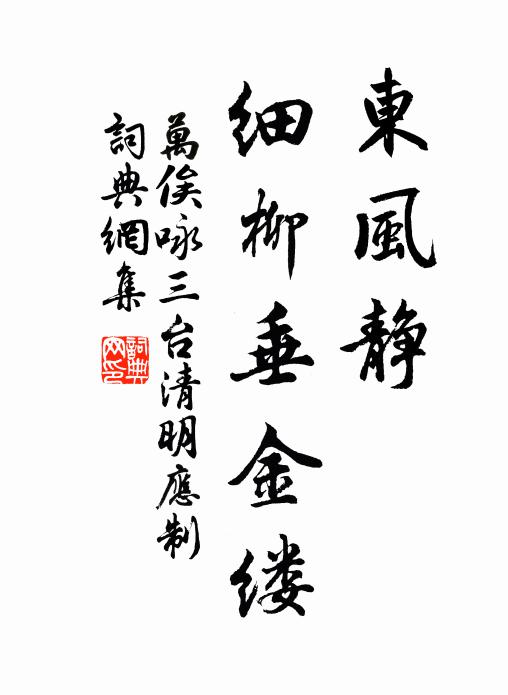 東風静
细柳垂金缕
萬俟咏三台清明應制
詞典網集
詞典網印